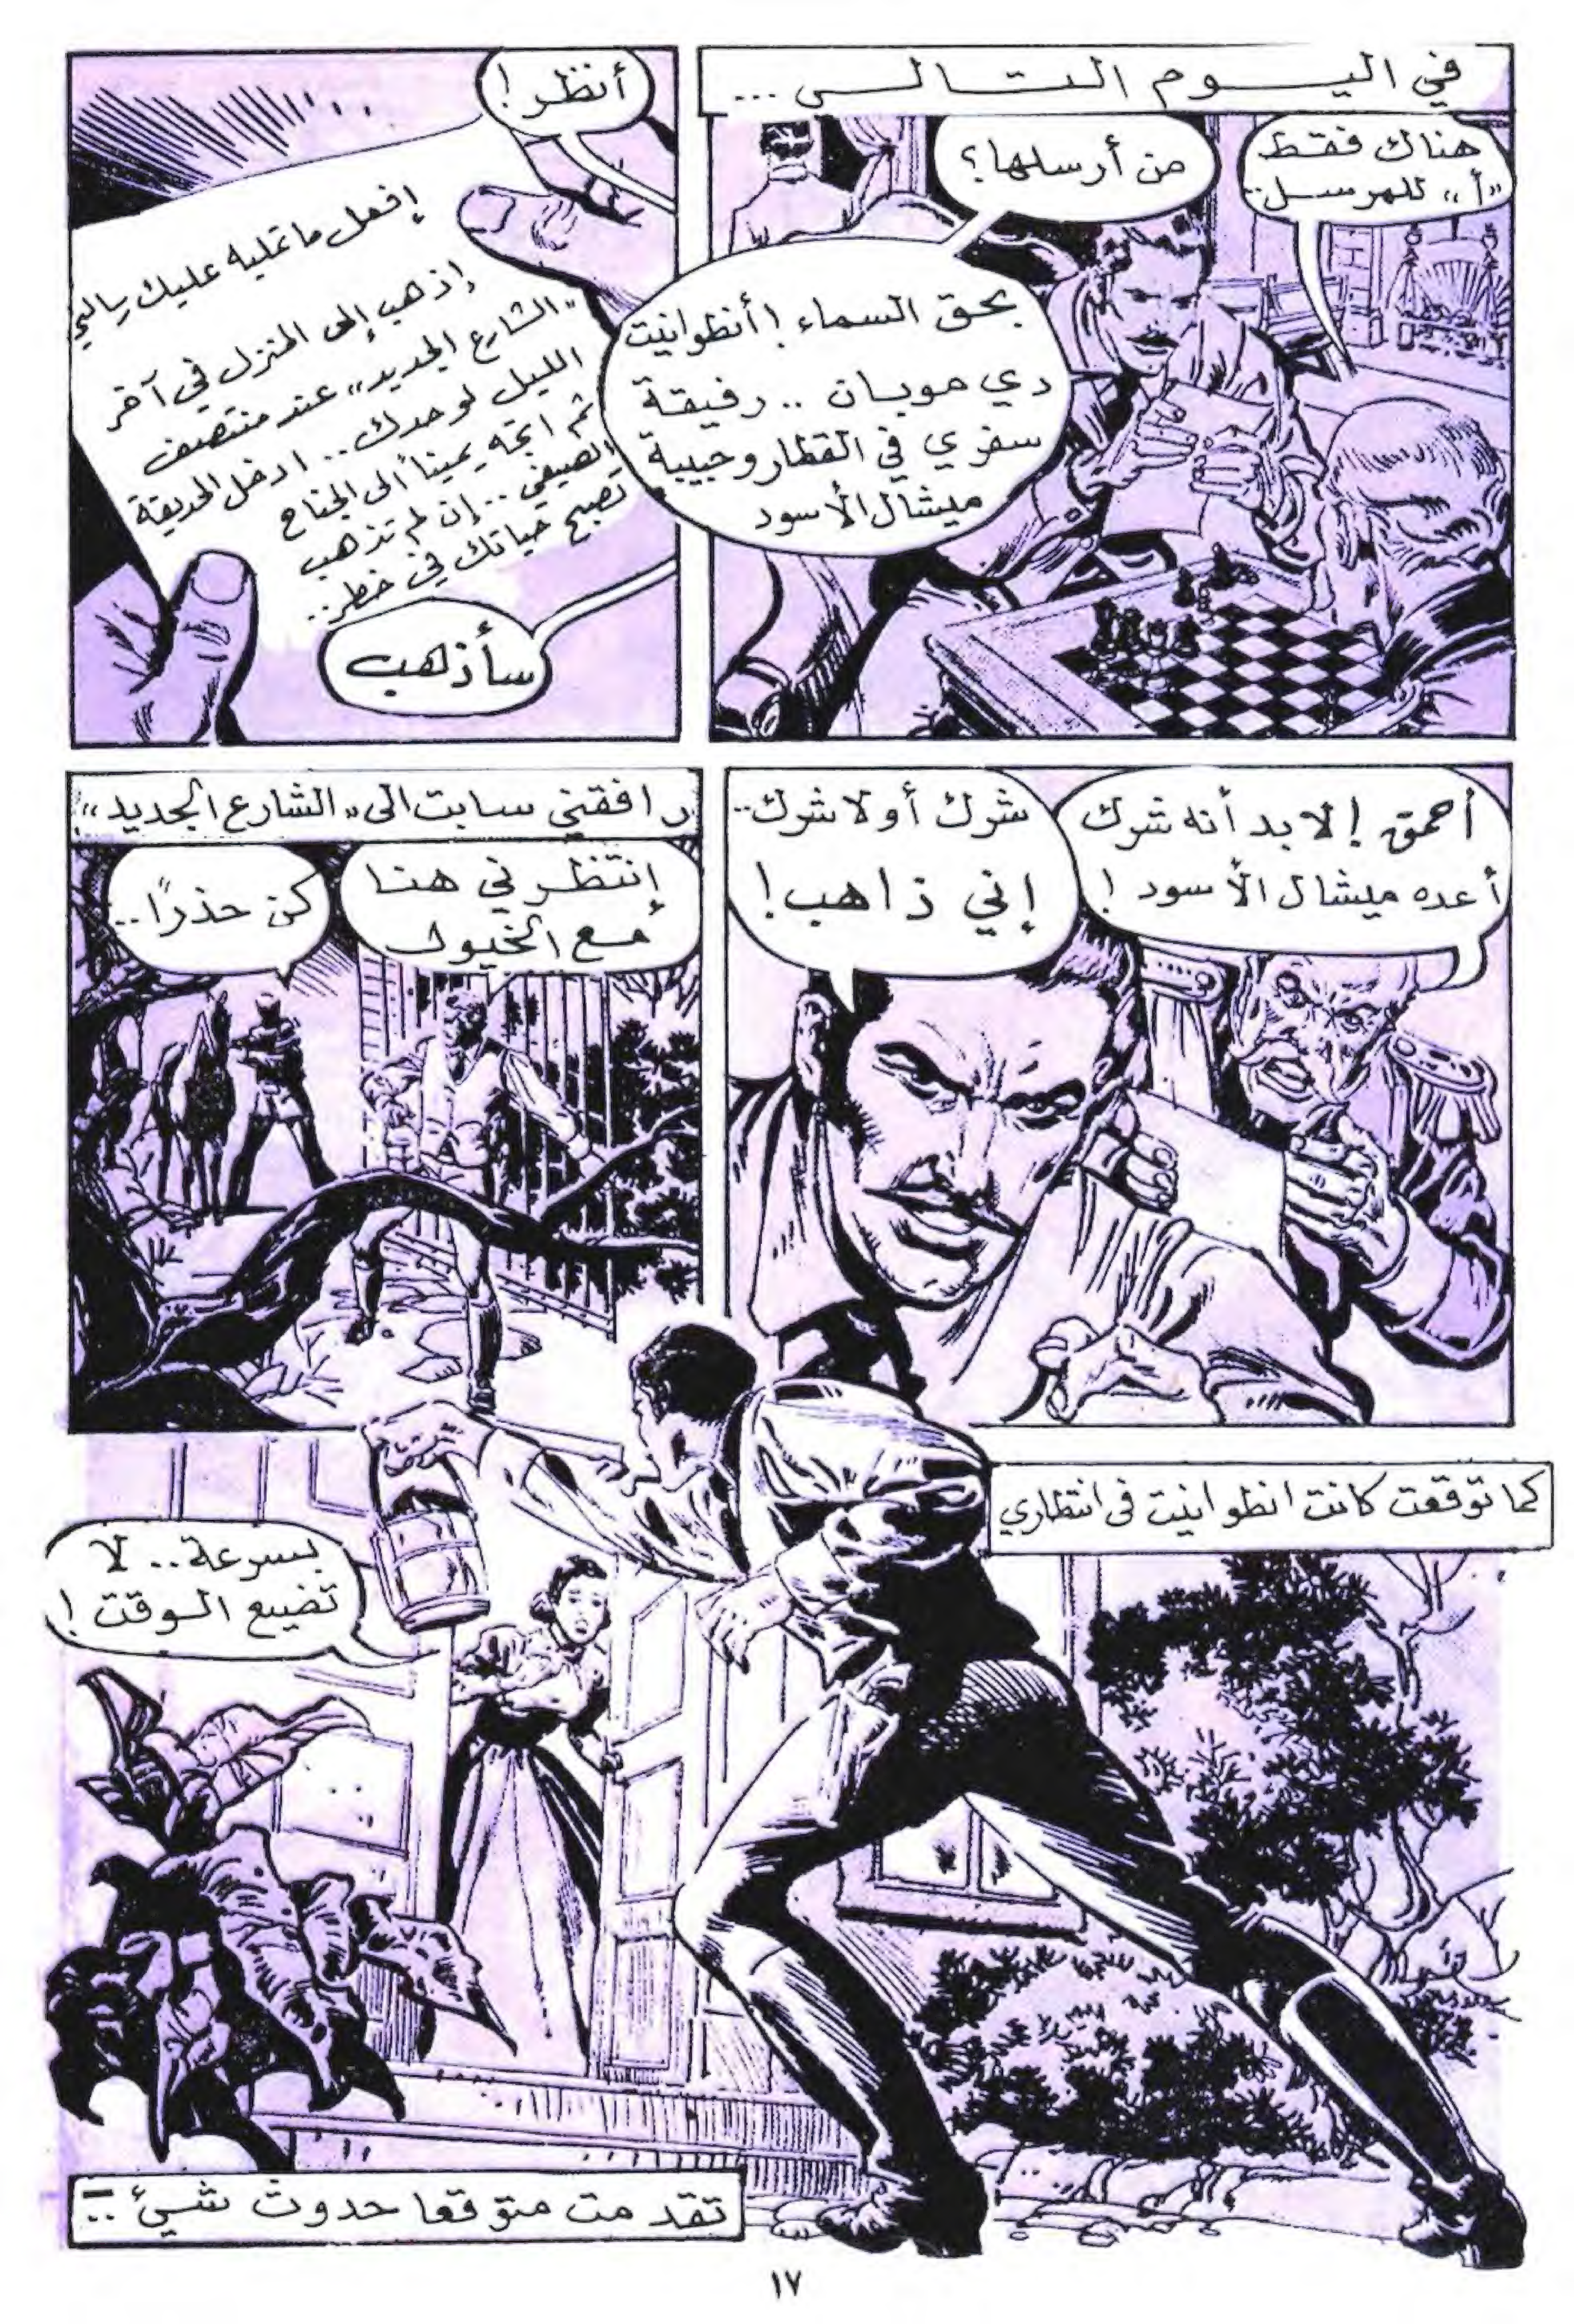 في اليوم التالي ...
هناك فقط
"أ" للمرسل..
من أرسلها؟
بحق السماء ! أنطوانيت
دي موبان .. رفيقة
سفري في القطار وحبيبة
ميشال الأسود
أنظر !
إفعل ما تمليه عليك رسالتي
إذهب إلى المنزل في آخر
"الشارع الجديد" عند منتصف
الليل لوحدك .. ادخل الحديقة
ثم اتجه يميناً الى الجناح
الصيفي .. إن لم تذهب
تصبح حياتك في خطر..
سأذهب
أحمق ! لا بد أنه شرك
أعده ميشال الأسود !
شرك أو لا شرك..
إني ذاهب !
رافقني سابت الى "الشارع الجديد"
إنتظرني هنا
مع الخيول
كن حذرًا..
كما توقعت كانت انطوانيت في انتظاري
بسرعة.. لا
تضيع الوقت !
تقدمت متوقعا حدوث شيئ ..
١٧